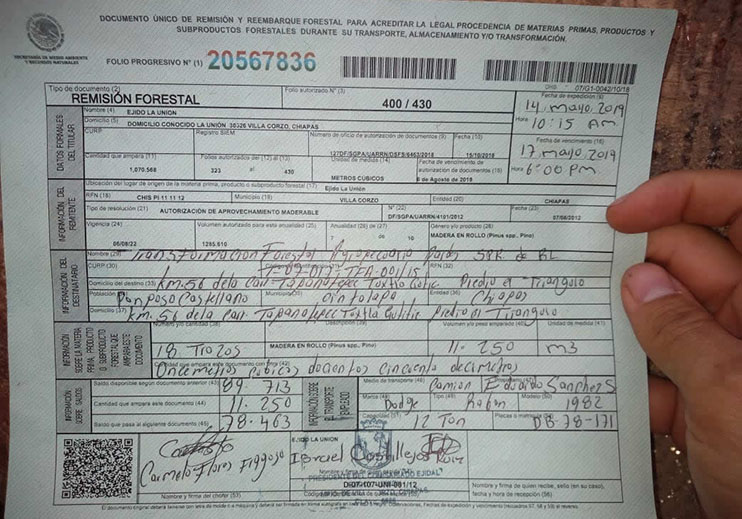 DOCUMENTO ÚNICO DE REMISIÓN Y REEMBARQUE FORESTAL PARA ACREDITAR LA LEGAL PROCEDENCIA DE MATERIAS PRIMAS, PRODUCTOS Y
SUBPRODUCTOS FORESTALES DURANTE SU TRANSPORTE, ALMACENAMIENTO Y/O TRANSFORMACIÓN.
SECRETARÍA DE MEDIO AMBIENTE
Y RECURSOS NATURALES
FOLIO PROGRESIVO N° (1) 20567836
07/G1-0042/10/18
Tipo de documento (2) Folio autorizado N° (3) Fecha de expedición (8)
REMISIÓN FORESTAL 400 / 430 14 mayo 2019
Nombre (4) EJIDO LA UNION
Hora 10:15 Am
Domicilio (5) DOMICILIO CONOCIDO LA UNION VILLA CORZO, CHIAPAS
CURP Registro SIEM Número de oficio de autorización de documentos (9) Fecha (10)
127DF/SGPA/UARRN/DSFS/6463/2018 15/10/2018
17 mayo 2019
Cantidad que ampara (11) Folios autorizados del (12) al (13) Unidad de medida (14)
Hora 6:00 Pm
1,070.568 323 al 430 METROS CÚBICOS
DATOS FORMALES DEL TITULAR
Ubicación del lugar de origen de la materia prima, producto o subproducto forestal (17) Ejido La Unión
RFN (18) CHIS PI 11 11 12 Municipio (19) VILLA CORZO Entidad (20) CHIAPAS
Tipo de resolución (21) AUTORIZACIÓN DE APROVECHAMIENTO MADERABLE N° (22) DF/SGPA/UARRN/4101/2012 Fecha (23) 07/06/2012
Vigencia (24) Volumen autorizado para esta anualidad (25) Anualidad (26) de (27) Género y/o producto (28)
06/08/22 1285.610 7 de 10 MADERA EN ROLLO (Pinus spp., Pino)
INFORMACIÓN DEL REMITENTE
Nombre (29) Transformacion Forestal Agropecuario
CURP (30) RFN (32)
Domicilio del destino (33) Km. 56 dela Carr. Tapanatepec Tuxtla Gutie. Piedra el Triangulo
Población Ponposo Castellano Municipio Cintalapa Entidad (36) Chiapas
Domicilio (37) Km. 56 dela Carr. Tapanatepec Tuxtla Gutie. Piedra el Triangulo
INFORMACIÓN DEL DESTINATARIO
Número y/o cantidad (38) Descripción (39) Volumen y/o peso amparado (40) Unidad de medida (41)
18 Trozos MADERA EN ROLLO (Pinus spp., Pino) 11-250 m3
Cantidad que ampara este documento con letra (42)
Oncemetros cubicos docientos cincuenta decimetros
INFORMACIÓN SOBRE LA MATERIA PRIMA, PRODUCTO O SUBPRODUCTO FORESTAL QUE AMPARA ESTE DOCUMENTO
Saldo disponible según documento anterior (43) 89.713 Medio de transporte (46) Camion Eduardo Sanchez S
Cantidad que ampara este documento (44) 11-250 Marca (48) Dodge Tipo (49) Rabon Modelo (50) 1982
Saldo que pasa al siguiente documento (45) 78-463 Capacidad 12 Ton DB-78-171
INFORMACIÓN SOBRE SALDOS
INFORMACIÓN SOBRE EL TRANSPORTE EMPLEADO
EJIDO LA UNION
Carmelo Flores
Israel Castillejo
PRESIDENTE DEL COMISARIADO EJIDAL
Nombre y firma del chofer (53)
Nombre y firma de quien recibe, sello (en su caso),
fecha y hora de recepción (56)